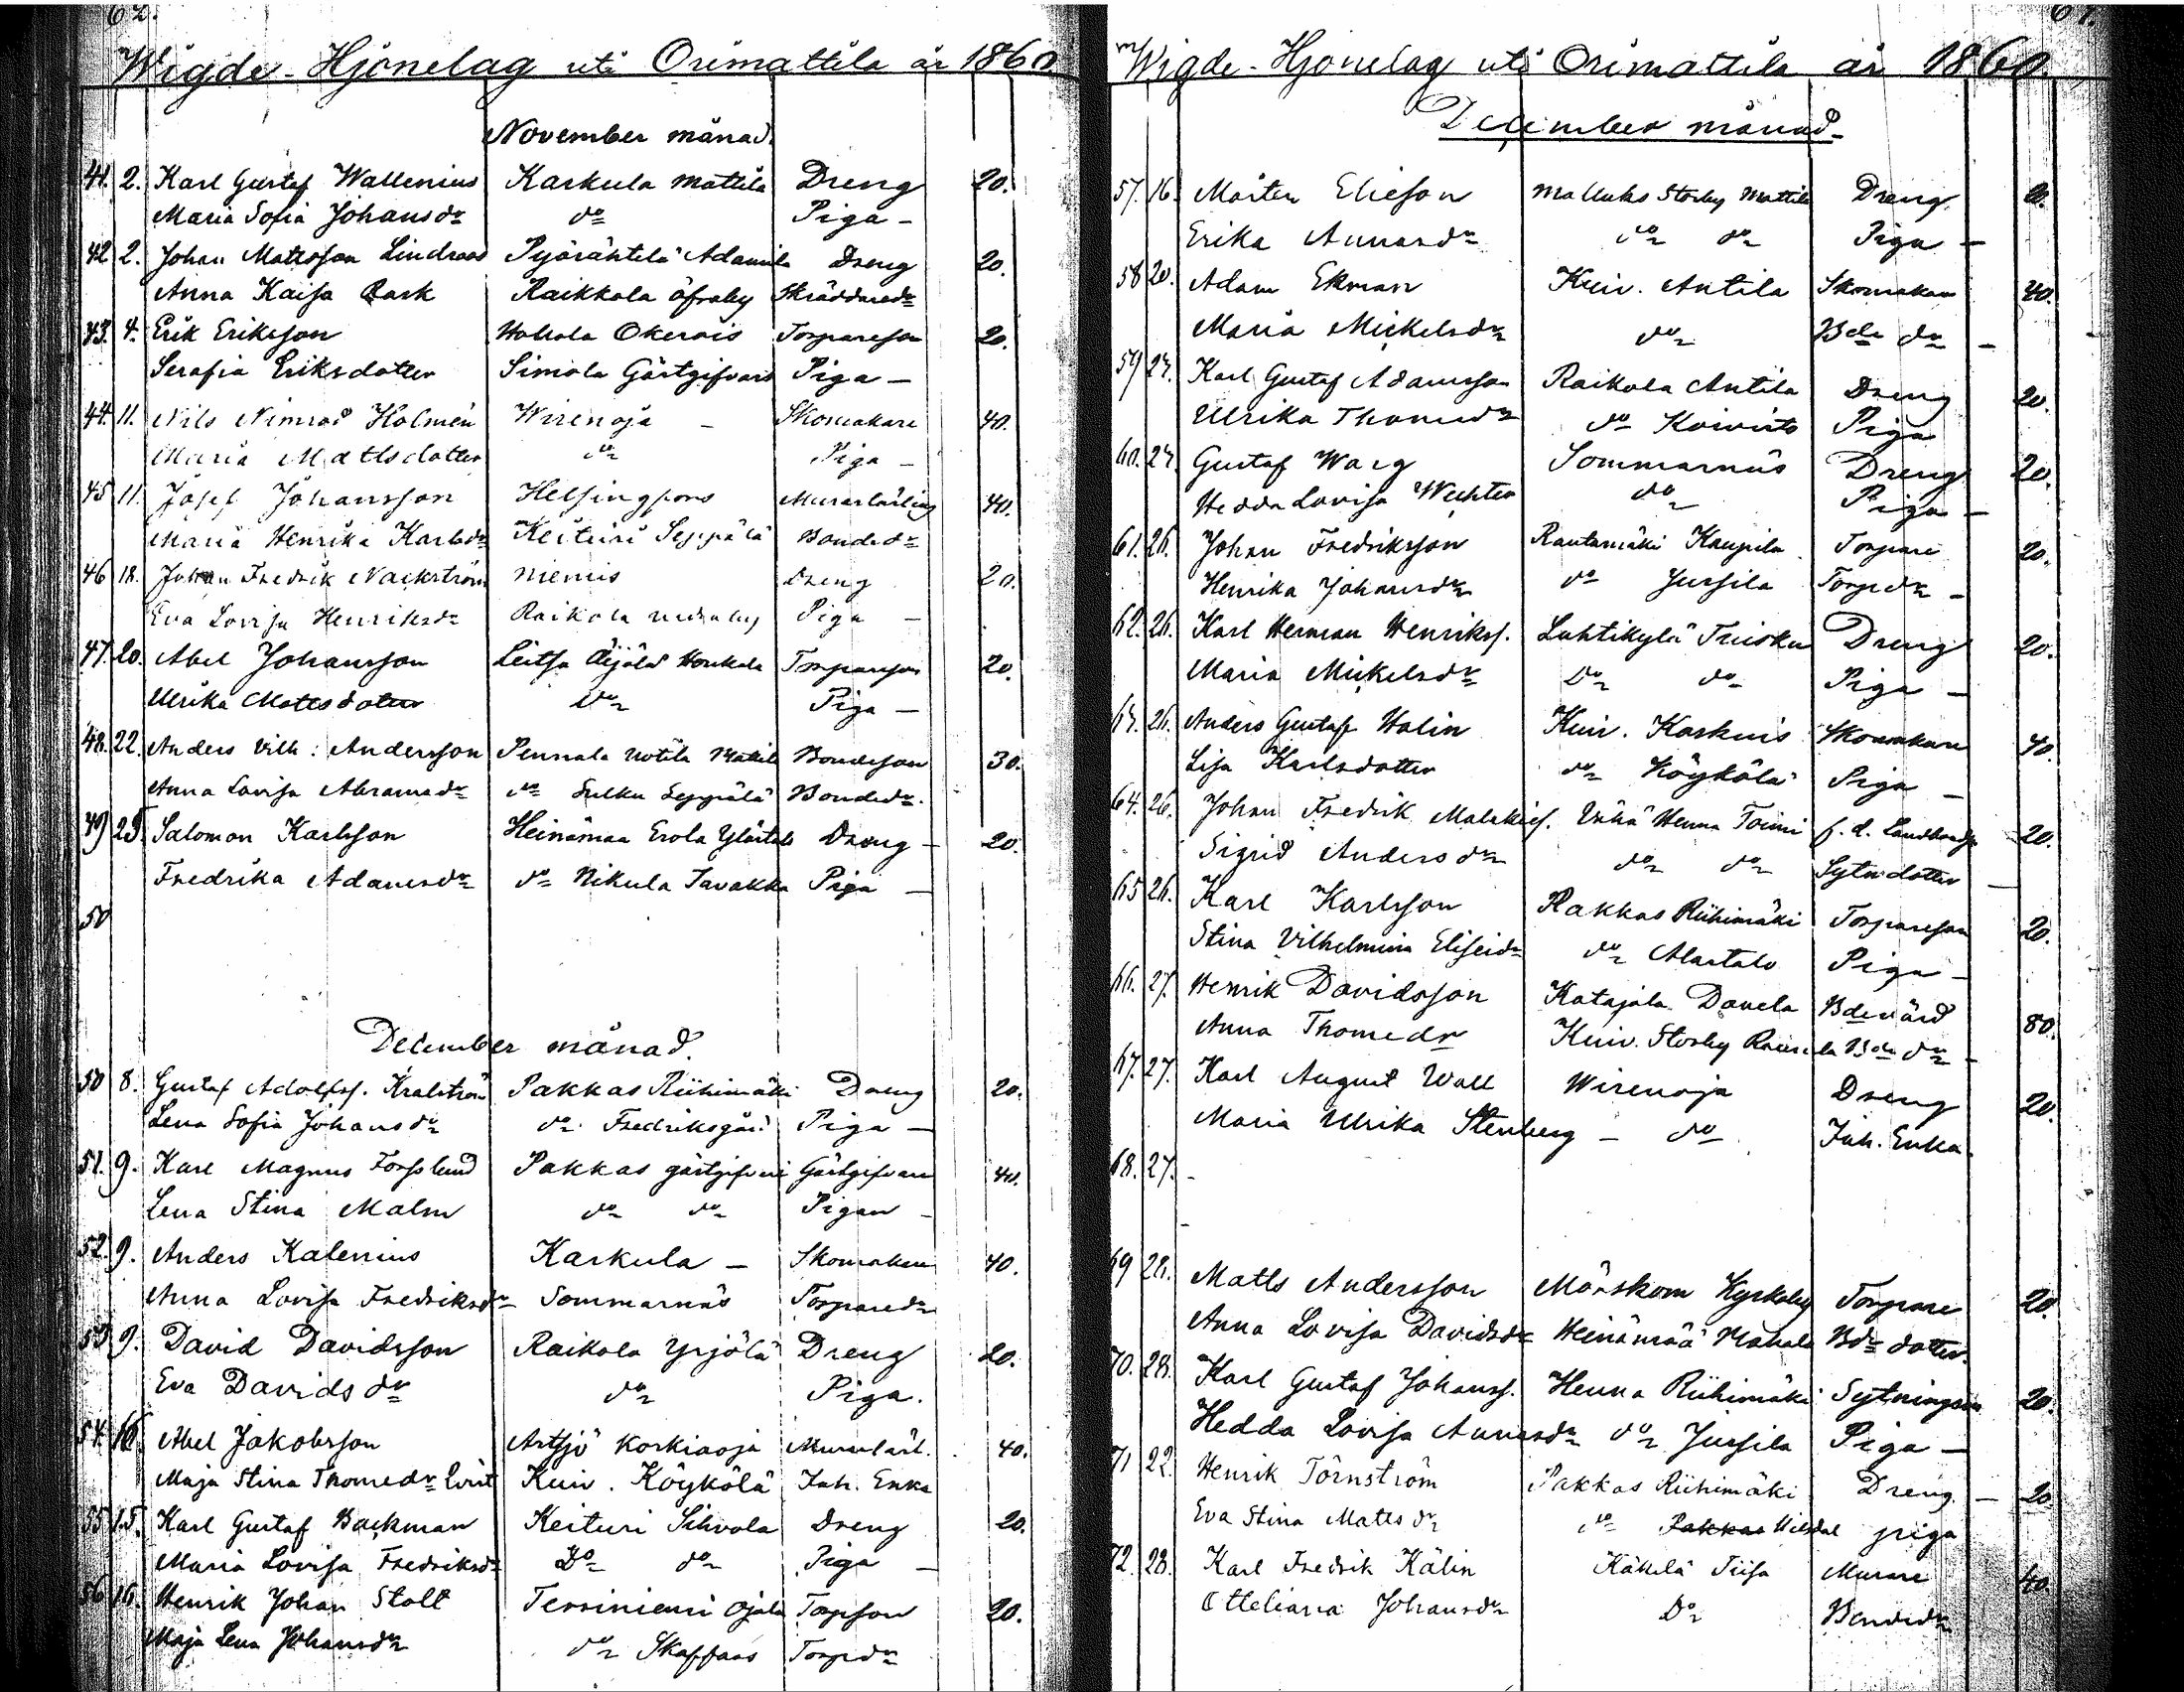 62.
Wigde-Hjonelag uti Orimattila år 1860
November månad.
41. 2. Karl Gustaf Wallenius Karkula Mattila Dreng 20.
Maria Sofia Johansdr do Piga -
42 2. Johan Matsson Lindroos Pyörähtelä Adamila Dreng 20.
Anna Kaisa Rask Raikkola öfraby Skräddaredr
43. 4. Erik Eriksson Okerois Torpareson 20.
Serafia Eriksdotter Simola Gästgifvars Piga -
44. 11. Nils Nimrod Holmén Wirenoja - Skomakare 40.
Maria Mattsdotter do Piga -
45 11. Josef Johansson Helsingfors Murarlärling 40.
Maria Henrika Karlsdr Keituri Seppälä Bondedr
46 18. Johan Fredrik Nackström Niemis Dreng 20.
Eva Lovisa Henriksdr Raikola nedraby Piga -
47. 20. Abel Johansson Leitsa Äijälä Honkala Torpareson 20.
Ulrika Mattsdotter Do Piga -
48. 22. Anders Vilh: Andersson Pennala Notila Mäkilä Bondeson 30.
Anna Lovisa Abramsdr do Sulku Seppälä Bondedr.
49 25. Salomon Karlsson Heinämaa Erola Ylästalo Dreng - 20.
Fredrika Adamsdr do Nikula Tavakka Piga -
50
December månad.
50 8. Gustaf Adolfsf. Kralström Pakkas Riihimäki Dreng 20.
Lena Sofia Johansdr do Fredriksgård Piga -
51. 9. Karl Magnus Forsslund Pakkas gästgifveri Gästgifvare 40.
Lena Stina Malm do do Pigan -
52. 9. Anders Kalenius Karkula - Skomakare 40.
Anna Lovisa Fredriksdr Sommarnäs Torparedr
53 9. David Davidsson Raikola Yrjölä Dreng 20.
Eva Davidsdr do Piga.
54. 16 Abel Jakobsson Artsjö Korkiaoja Murarlärl. 40.
Maja Stina Thomedr Kuiv. Köykölä Inh. Enka
55 15. Karl Gustaf Backman Keituri Sihvola Dreng 20.
Maria Lovisa Fredriksdr Do do Piga -
56 16. Henrik Johan Stolt Terriniemi Ojala Torpson 20.
Maja Lena Johansdr do Skaffars Torpdr
Wigde-Hjonelag uti Orimattila år 1860.
December månad-
57. 16. Mårten Eliesson Malluks Storby Mattila Dreng. 20.
Erika Annasdr do do Piga -
58 20. Adam Ekman Kuiv. Antila Skomakare 40.
Maria Mickelsdr do Bde dr -
59 23. Karl Gustaf Adamsson Raikola Antila Dreng 20.
Ulrika Thomedr do Koivisto Piga
60. 23. Gustaf Warg Sommarnäs Dreng 20.
Hedda Lovisa Wechter do Piga -
61. 26. Johan Fredriksson Rautamäki Kaupila Torpare 20.
Henrika Johansdr do Jussila Torpdr -
62. 26. Karl Herman Henrikss. Luhtikylä Truisku Dreng 20.
Maria Mickelsdr Do do Piga -
63. 26. Anders Gustaf Walin Kuiv. Kaskuis Skomakare 40.
Lisa Karlsdotter do Köykölä Piga -
64. 26. Johan Fredrik Malakies. Vähä Henna Toimi f. d. Landbonde 20.
Sigrid Andersdr do do Sytndotter -
65 26. Karl Karlsson Pakkas Riihimäki Torpareson 20.
Stina Vilhelmina Eliseidr do Alastalo Piga -
66. 27. Henrik Davidsson Katajala Davela Bdevärd 80.
Anna Thomedr Kuiv. Storby Bde dr -
67. 27. Karl August Wall Wirenoja Dreng 20.
Maria Ulrika Stenberg - do Inh. Enka
68. 27. -
-
69 28. Matts Andersson Mörskom Kyrkoby Torpare 20.
Anna Lovisa Davidsdr Heinämää Mahala Bde dotter.
70. 28. Karl Gustaf Johanss. Henna Riihimäki Sytningsson 20.
Hedda Lovisa Annasdr do Jussila Piga -
71 22. Henrik Törnström Pakkas Riihimäki Dreng. - 20.
Eva Stina Mattsdr do Pakkas piga
72. 28. Karl Fredrik Kälin Käkelä Tiisa Murare 40.
Otteliana Johansdr Do Bondedr